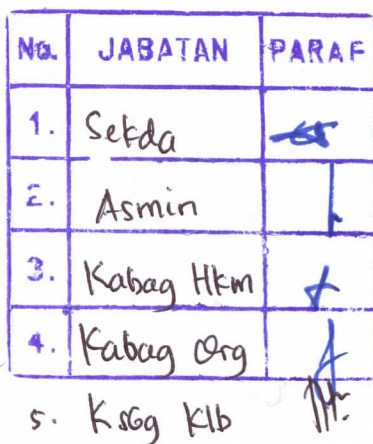 No. JABATAN PARAF
1. Sekda
2. Asmin
3. Kabag Hkm
4. Kabag Org
5. Klb